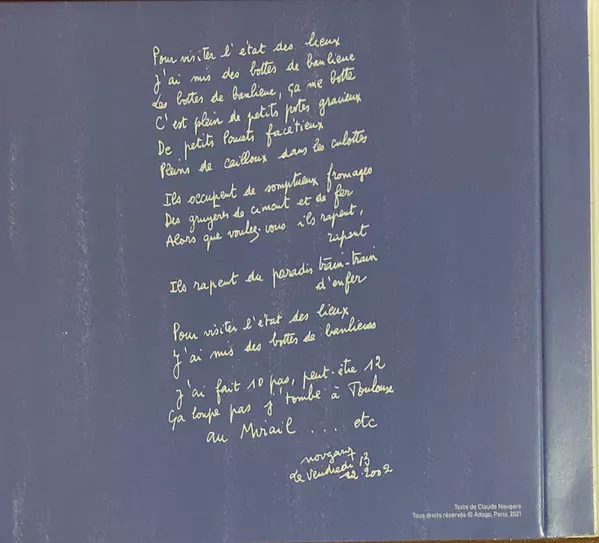 Pour visiter l'état des lieux
J'ai mis des bottes de banlieue
Les bottes de banlieue, ça me botte
C'est plein de petits potes gracieux
De petits Poucets facétieux
Pleins de cailloux dans les culottes
Ils occupent de somptueux fromages
Des gruyères de ciment et de fer
Alors que voulez-vous ils rapent,
rapent
Ils rapent du paradis train-train
d'enfer
Pour visiter l'état des lieux
J'ai mis des bottes de banlieues
J'ai fait 10 pas, peut-être 12
Ça loupe pas j' tombe à Toulouse
au Mirail ... etc
nougaro
le vendredi 13
12.2002
Texte de Claude Nougaro
Tous droits réservés © Adagp, Paris, 2021